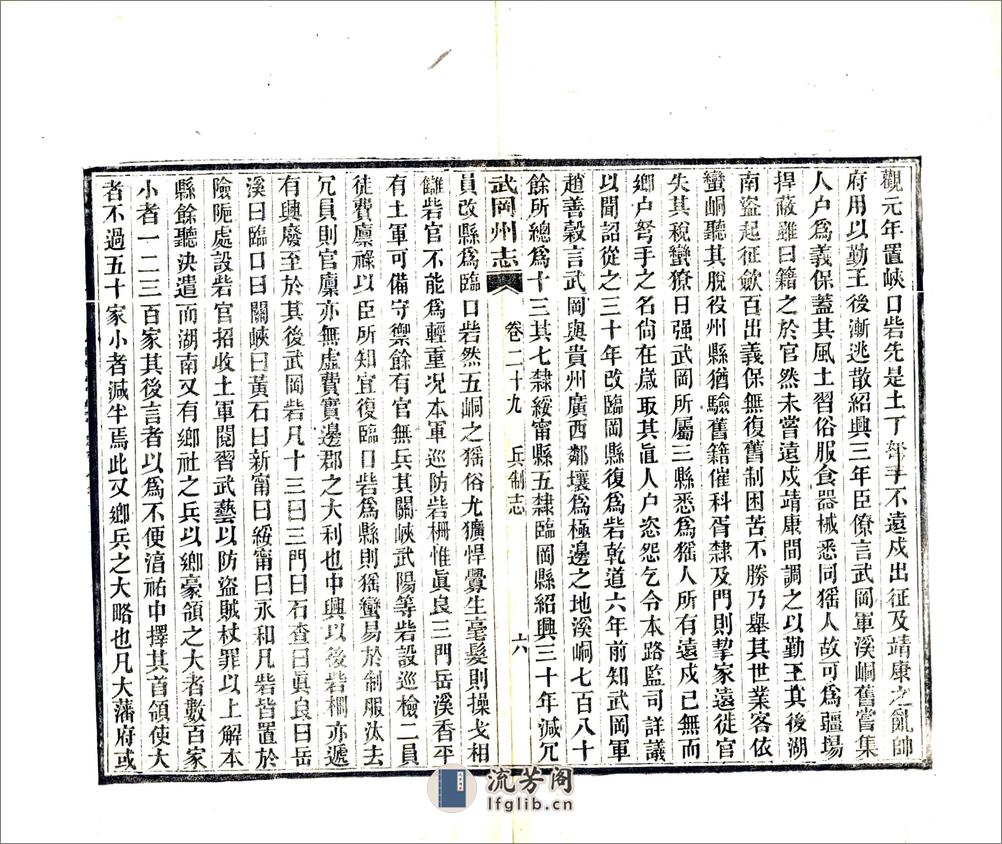 觀元年置峽口砦先是土丁弩手不遠戍出征及靖康之亂帥
府用以勤王後漸逃散紹興三年臣僚言武岡軍溪峒舊嘗集
人户爲義保蓋其風土習俗服食器械悉同猺人故可爲疆埸
捍蔽雖曰籍之於官然未嘗遠戍靖康間調之以勤王其後湖
南盜起征歛百出義保無復舊制困苦不勝乃舉其世業客依
蠻峒聽其脫役州縣猶驗舊籍催科胥隸及門則挈家遠徙官
失其稅蠻獠日强武岡所屬三縣悉爲猺人所有遠戍已無而
鄉户弩手之名尙在嵗取其直人户恣怨乞令本路監司詳議
以聞詔從之三十年改臨岡縣復爲砦乾道六年前知武岡軍
趙善穀言武岡與貴州廣西鄰壤爲極邊之地溪峒七百八十
餘所總爲十三其七隸綏甯縣五隸臨岡縣紹興三十年減冗
武岡州志 卷二十九 兵制志 六
員改縣爲臨口砦然五峒之猺俗尤獷悍釁生毫髮則操戈相
讎砦官不能爲輕重況本軍巡防砦柵惟眞良三門岳溪香平
有土軍可備守禦餘有官無兵其關峽武陽等砦設巡檢二員
徒費廩祿以臣所知宜復臨口砦爲縣則猺蠻易於制服汰去
冗員則官廩亦無虛費實邊郡之大利也中興以後砦柵亦遞
有興廢至於其後武岡砦凡十三曰三門曰石查曰眞良曰岳
溪曰臨口曰關峽曰黃石曰新甯曰綏甯曰永和凡砦皆置於
險阨處設砦官招收土軍閱習武藝以防盜賊杖罪以上解本
縣餘聽決遣而湖南又有鄉社之兵以鄉豪領之大者數百家
小者一二三百家其後言者以爲不便湻祐中擇其首領使大
者不過五十家小者減半焉此又鄉兵之大略也凡大藩府或
流芳阁
lfglib.cn